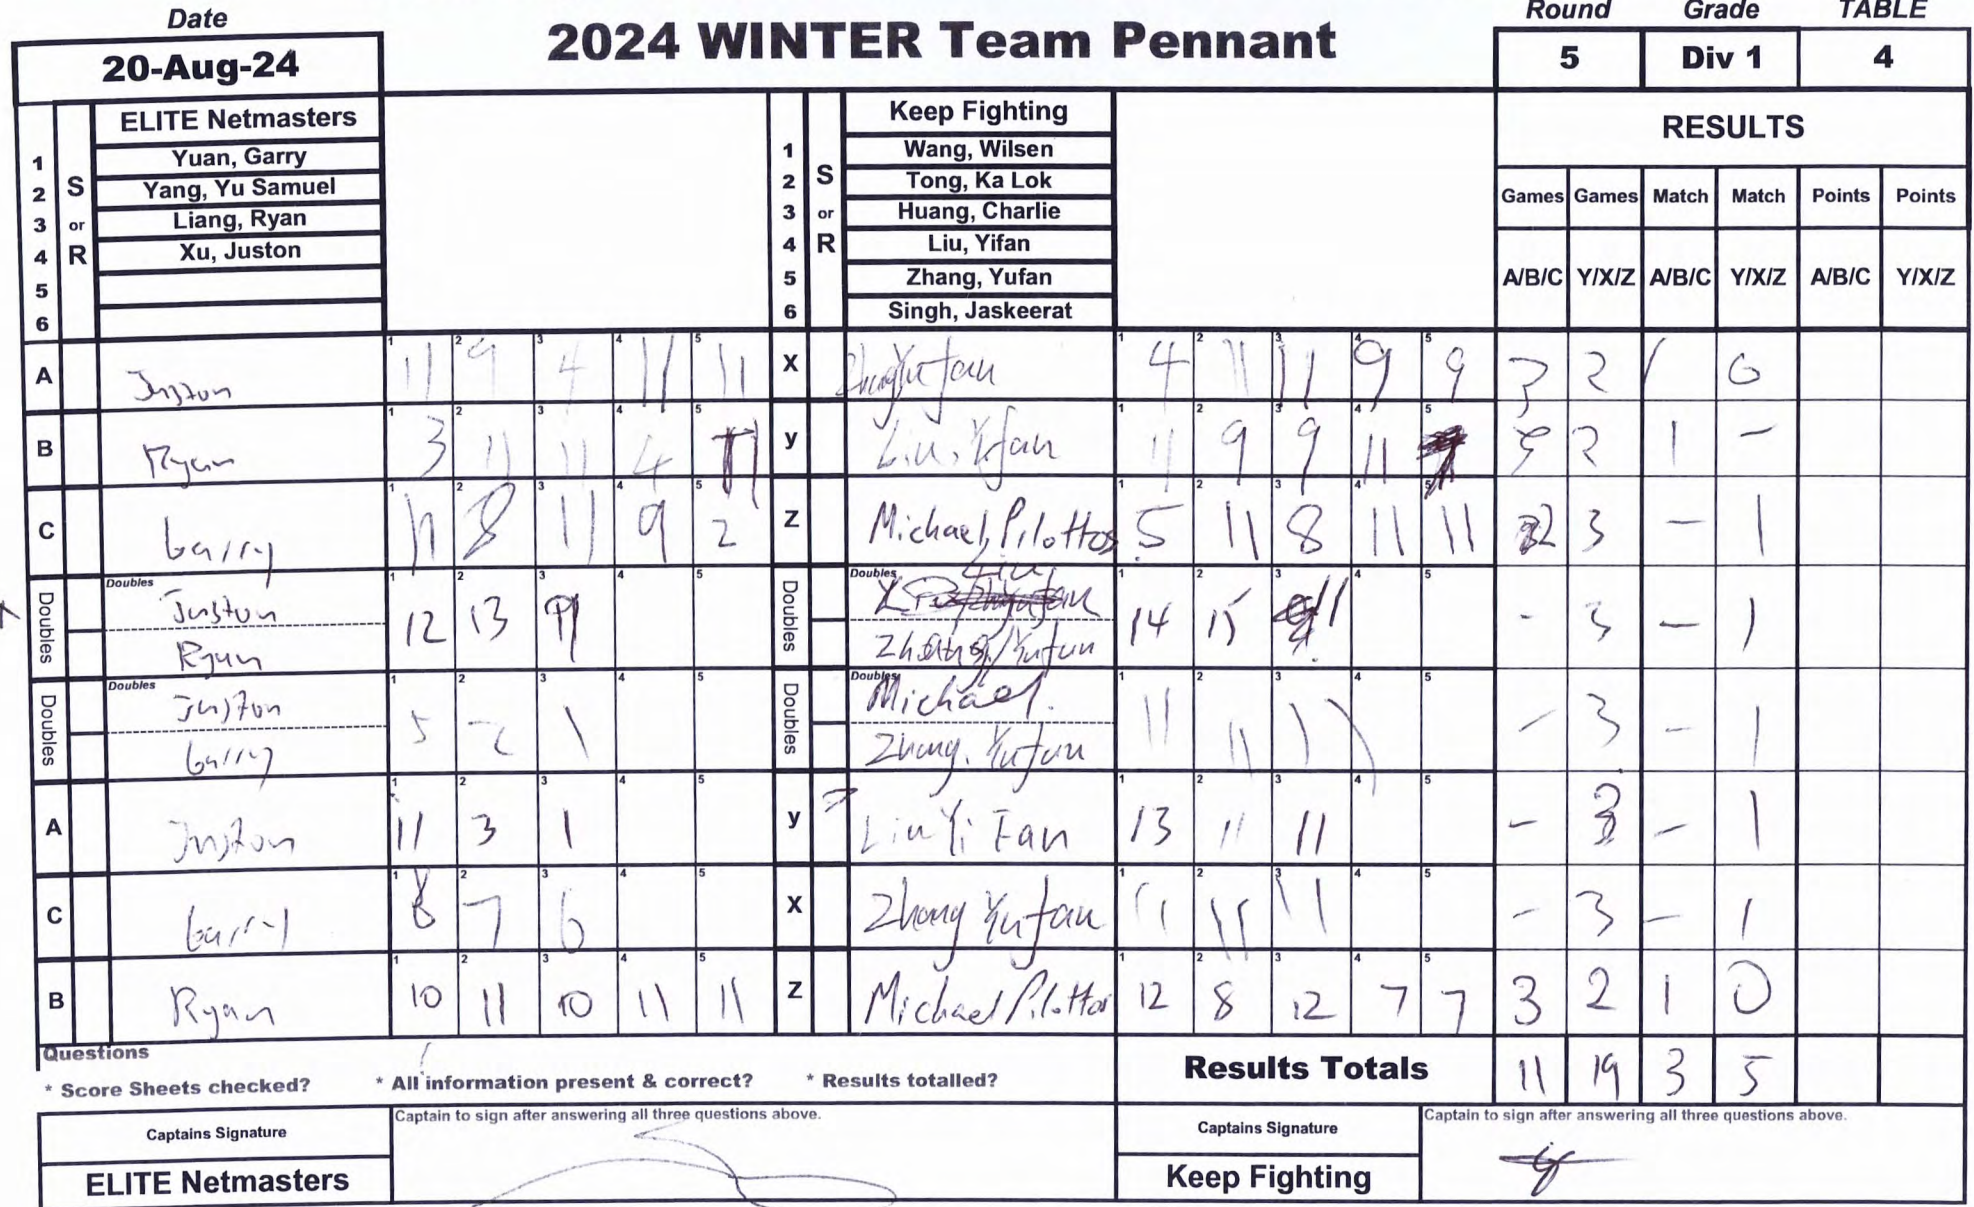 Date
2024 WINTER Team Pennant
Round Grade TABLE
20-Aug-24
5 Div 1 4
ELITE Netmasters
Keep Fighting
RESULTS
1 Yuan, Garry
2 Yang, Yu Samuel
3 Liang, Ryan
4 Xu, Juston
5
6
S or R
1 Wang, Wilsen
2 Tong, Ka Lok
3 Huang, Charlie
4 Liu, Yifan
5 Zhang, Yufan
6 Singh, Jaskeerat
S or R
Games Games Match Match Points Points
A/B/C Y/X/Z A/B/C Y/X/Z A/B/C Y/X/Z
A Juston 11 9 4 11 11 X Zhang Yufan 4 11 11 9 9 3 2 1 0
B Ryan 3 11 11 4 11 y Liu, Yifan 11 9 9 11 3 2 1 -
C Garry 11 8 11 9 2 Z Michael, Pilottos 5 11 8 11 11 2 3 - 1
Doubles Juston Ryan 12 13 9 Doubles Liu Zhang, Yufan 14 15 11 - 3 - 1
Doubles Juston Garry 5 2 1 Doubles Michael. Zhang, Yufan 11 11 11 - 3 - 1
A Juston 11 3 1 y Liu Yi Fan 13 11 11 - 3 - 1
C Garry 8 7 6 X Zhang Yufan 11 11 11 - 3 - 1
B Ryan 10 11 10 11 11 Z Michael Pilottos 12 8 12 7 7 3 2 1 0
Questions
* Score Sheets checked? * All information present & correct? * Results totalled?
Results Totals 11 19 3 5
Captains Signature
Captain to sign after answering all three questions above.
ELITE Netmasters
Captains Signature
Captain to sign after answering all three questions above.
Keep Fighting